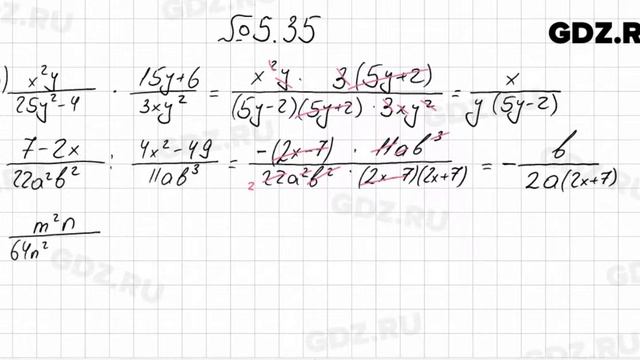 №5.35
GDZ.RU
) x²y/(25y²-4) · (15y+6)/(3xy²) = (x²y · 3(5y+2))/((5y-2)(5y+2) · 3xy²) = x/(y(5y-2))
(7-2x)/(22a²b²) : (4x²-49)/(11ab³) = (-(2x-7) · 11ab³)/(22a²b² · (2x-7)(2x+7)) = - b/(2a(2x+7))
2
m²n/64n²
GDZ.RU
GDZ.RU
GDZ.RU
GDZ.RU